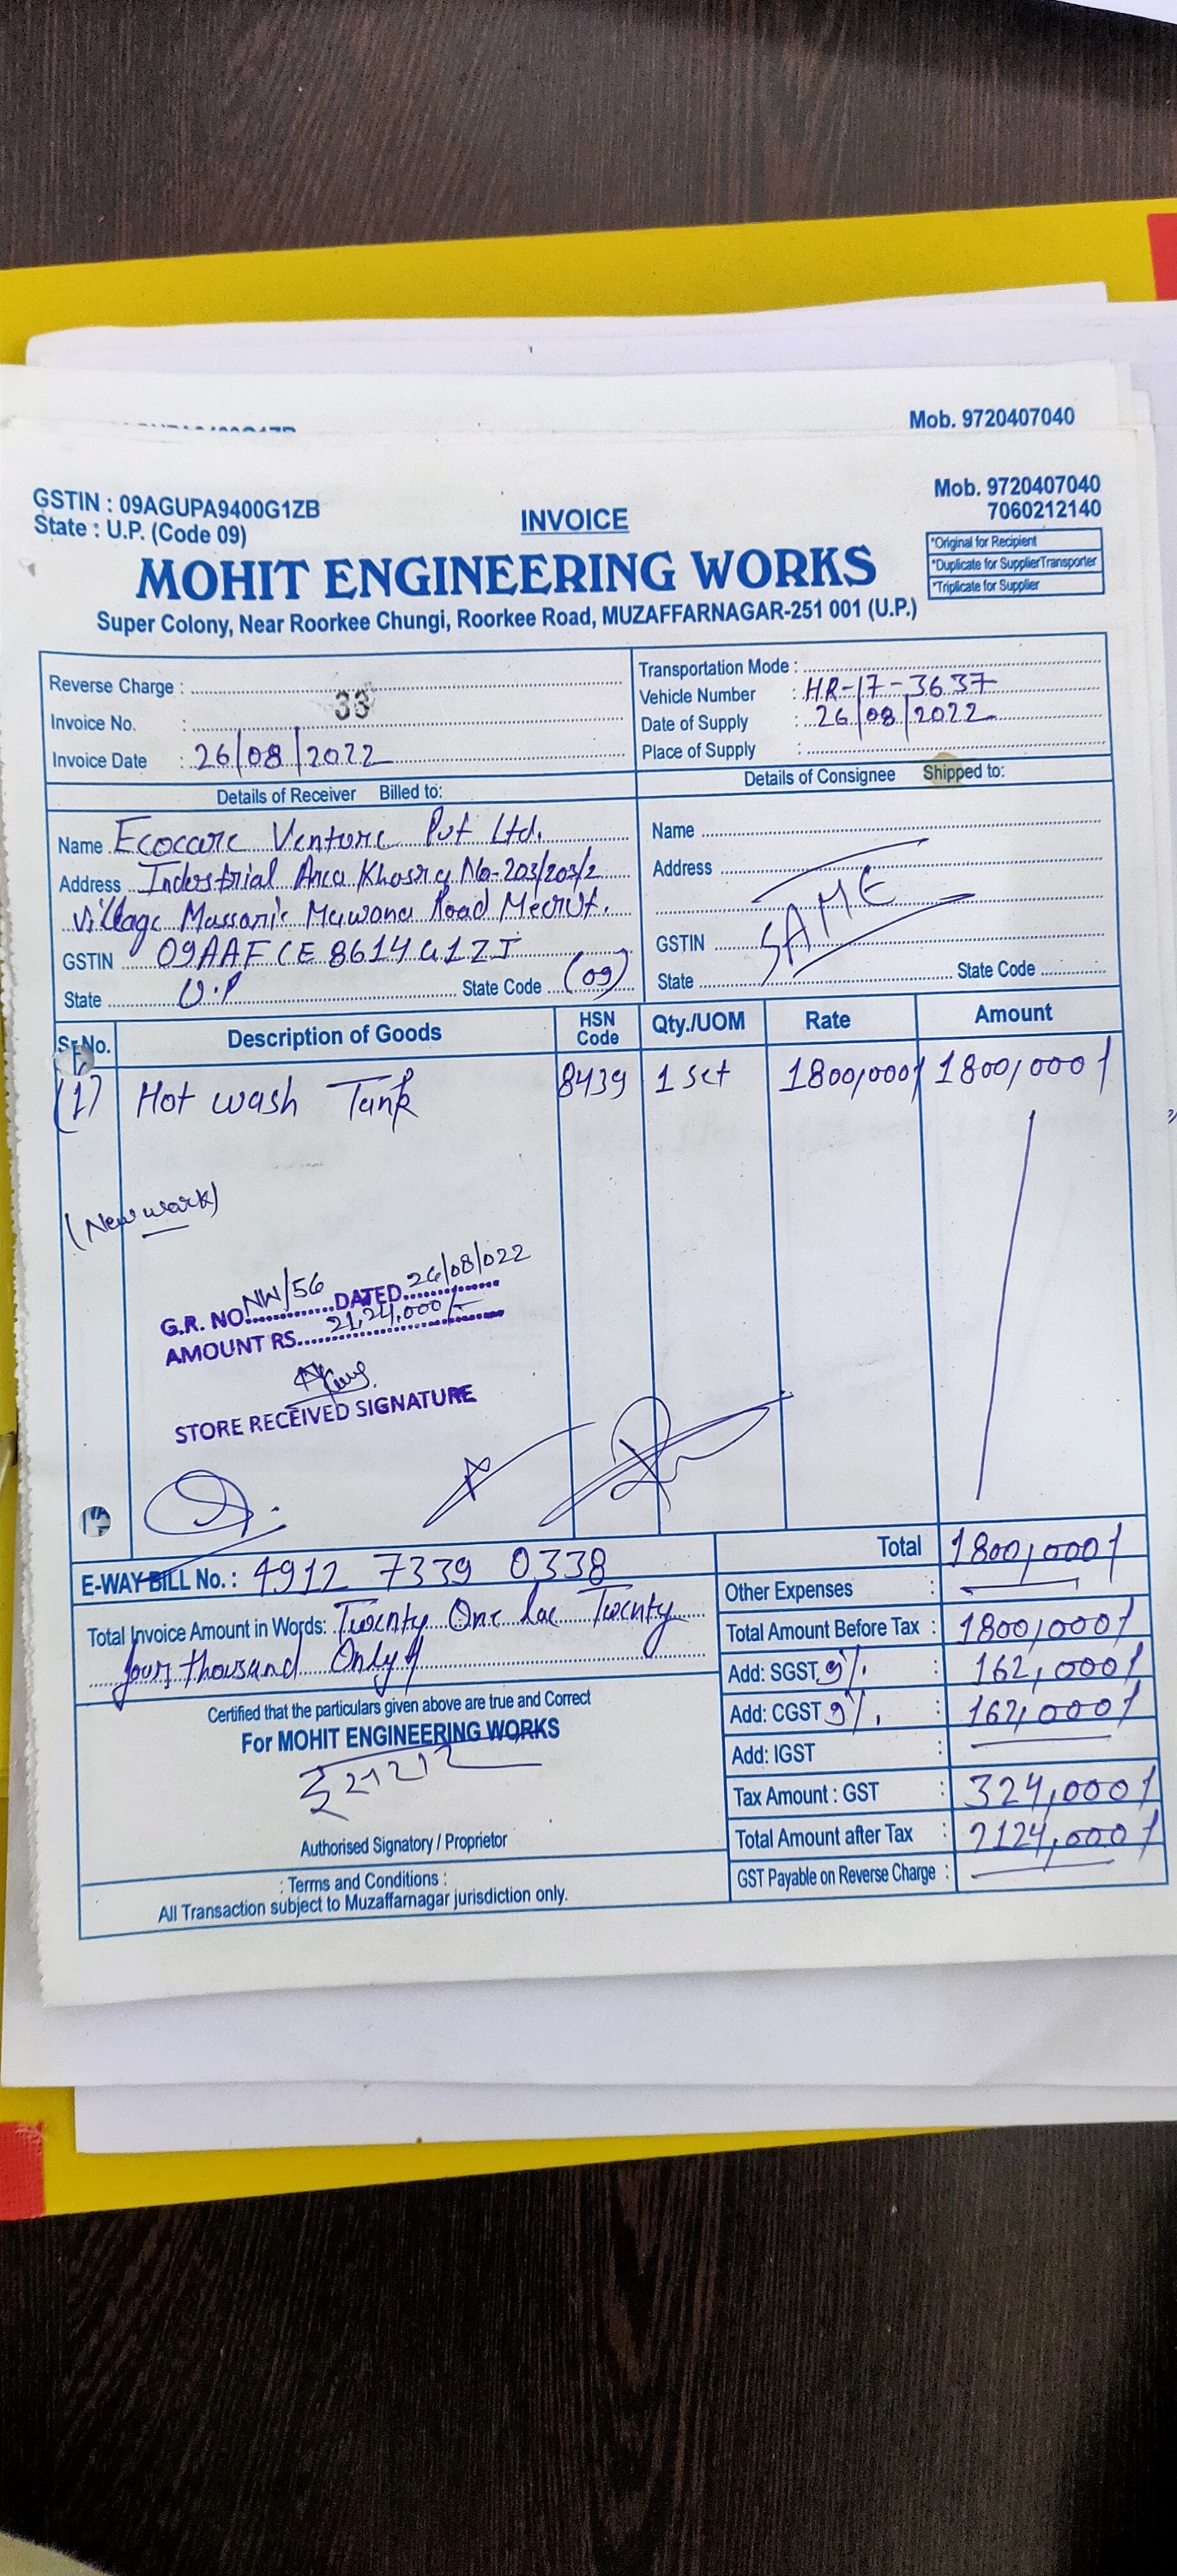 Mob. 9720407040
GSTIN : 09AGUPA9400G1ZB
State : U.P. (Code 09)
INVOICE
Mob. 9720407040
7060212140
*Original for Recipient
*Duplicate for Supplier Transporter
*Triplicate for Supplier
MOHIT ENGINEERING WORKS
Super Colony, Near Roorkee Chungi, Roorkee Road, MUZAFFARNAGAR-251 001 (U.P.)
Reverse Charge :
Invoice No. : 33
Invoice Date : 26/08/2022
Transportation Mode :
Vehicle Number : HR-17-3637
Date of Supply : 26/08/2022
Place of Supply :
Details of Receiver Billed to:
Name Ecocare Venture Pvt Ltd.
Address Industrial Area Khasra No-203/203/2
Village Mawana Road Meerut.
GSTIN 09AAFCE8614G1ZJ
State U.P State Code (09)
Details of Consignee Shipped to:
Name
Address
SAME
GSTIN
State State Code
Sr.No. Description of Goods HSN Code Qty./UOM Rate Amount
(1) Hot wash Tank 8439 1 Set 1800,000/ 1800,000/
(New work)
G.R. NO. NW/56 DATED 26/08/022
AMOUNT RS. 21,24,000/-
STORE RECEIVED SIGNATURE
E-WAY BILL No. : 4912 7339 0338
Total Invoice Amount in Words: Twenty One Lac Twenty
four thousand Only
Certified that the particulars given above are true and Correct
For MOHIT ENGINEERING WORKS
Authorised Signatory / Proprietor
: Terms and Conditions :
All Transaction subject to Muzaffarnagar jurisdiction only.
Total 1800,000/
Other Expenses :
Total Amount Before Tax : 1800,000/
Add: SGST 9% : 162,000/
Add: CGST 9% : 162,000/
Add: IGST :
Tax Amount : GST : 324,000/
Total Amount after Tax : 2124,000/
GST Payable on Reverse Charge :